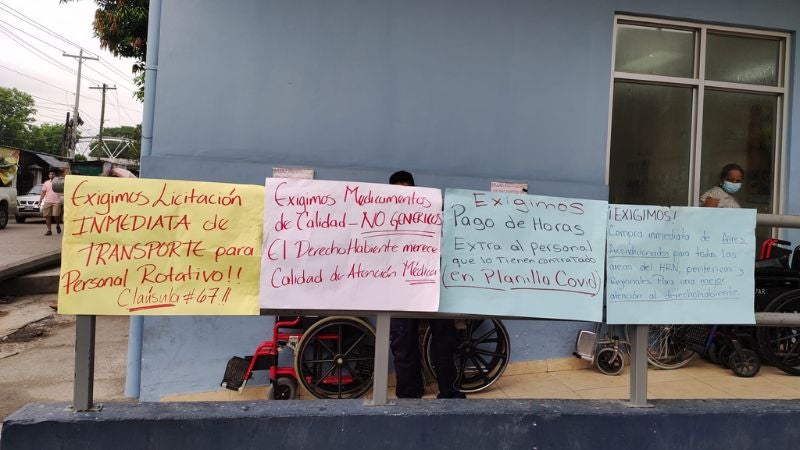 Exigimos Licitación
INMEDIATA de
TRANSPORTE para
Personal Rotativo!!
Claúsula #67!!
Exigimos Medicamentos
de Calidad - NO GENERICOS
El DerechoHabiente merece
Calidad de Atención Médica
Exigimos
Pago de Horas
Extra al personal
que lo Tienen contratado
(en Planilla Covid)
¡EXIGIMOS!
Compra inmediata de Aires
Acondicionados para todas las
áreas del HRN, periféricas y
Regionales. Para una mejor
atención al derechohabiente